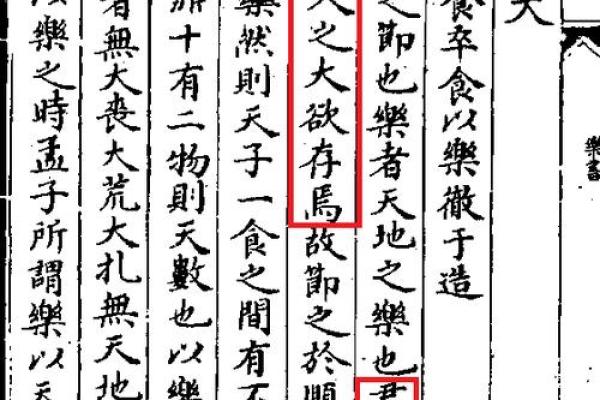 樂書
食卒食以樂徹于造
之節也樂者天地之樂也君
人之大欲存焉故節之於
樂然則天子一食之間有不
鼎十有二物則天數也以樂
者無大喪大荒大札無天地
樂之時孟子所謂樂以天